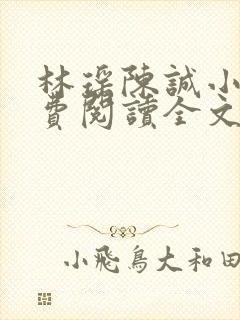 林瑤陳誠小
費閱讀全文
小飛鳥大和田